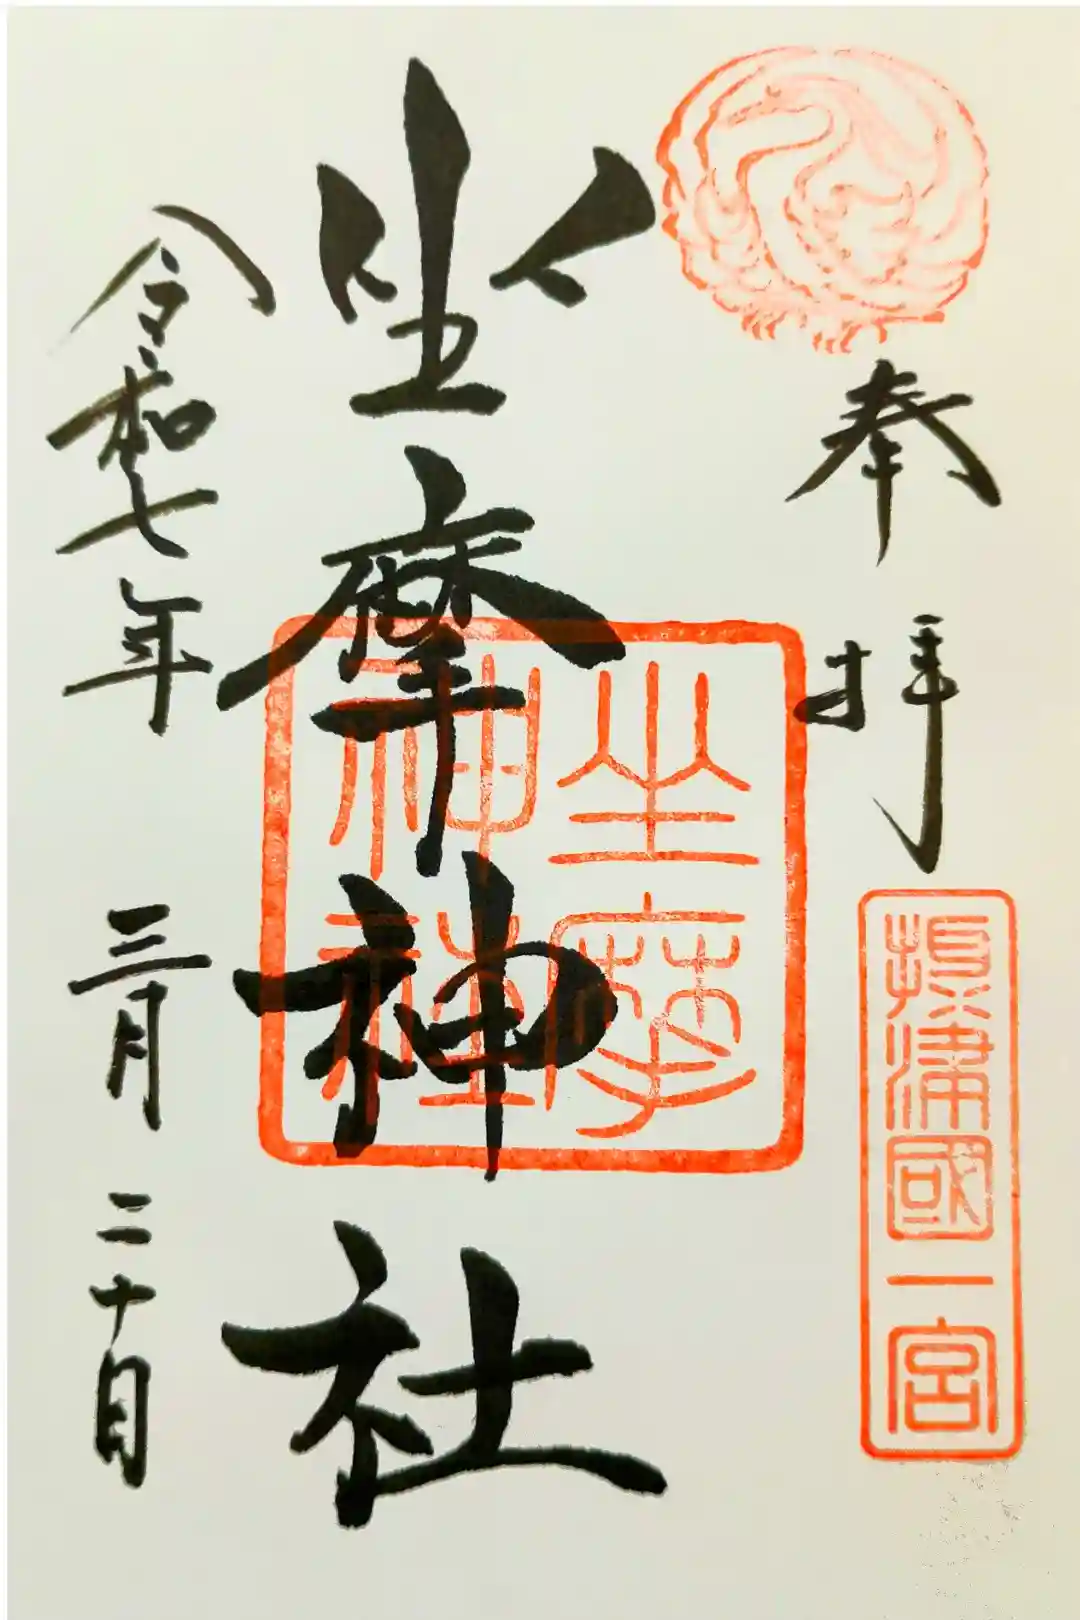 奉拝
攝津國一宮
坐摩神社
坐摩
神社
令和七年三月二十日